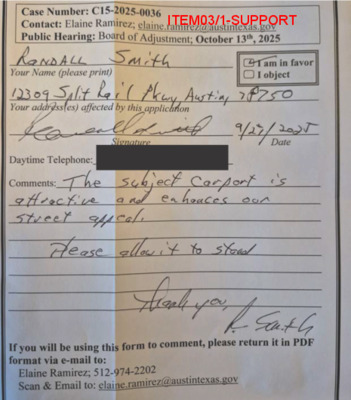 Case Number: C15-2025-0036
ITEM03/1-SUPPORT
Contact: Elaine Ramirez; elaine.ramirez@austintexas.gov
Public Hearing: Board of Adjustment; October 13th, 2025
RANDALL Smith
Your Name (please print)
I am in favor
I object
12309 Split Rail Pkwy, Austin, 78750
Your address(es) affected by this application
9/27/2025
Signature
Date
Daytime Telephone:
Comments: The subject carport is
attractive and enhances our
street appeal.
Please allow it to stand
Thank you,
R. Smith
If you will be using this form to comment, please return it in PDF
format via e-mail to:
Elaine Ramirez; 512-974-2202
Scan & Email to: elaine.ramirez@austintexas.gov